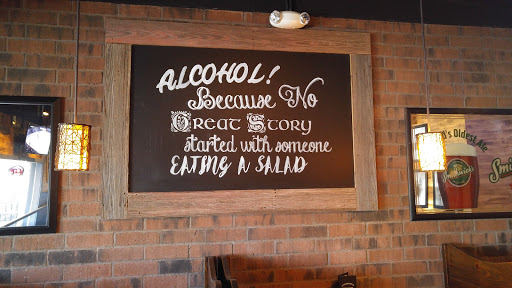 ALCOHOL!
Because No
Great Story
started with someone
EATING A SALAD
's Oldest Ale
Smi